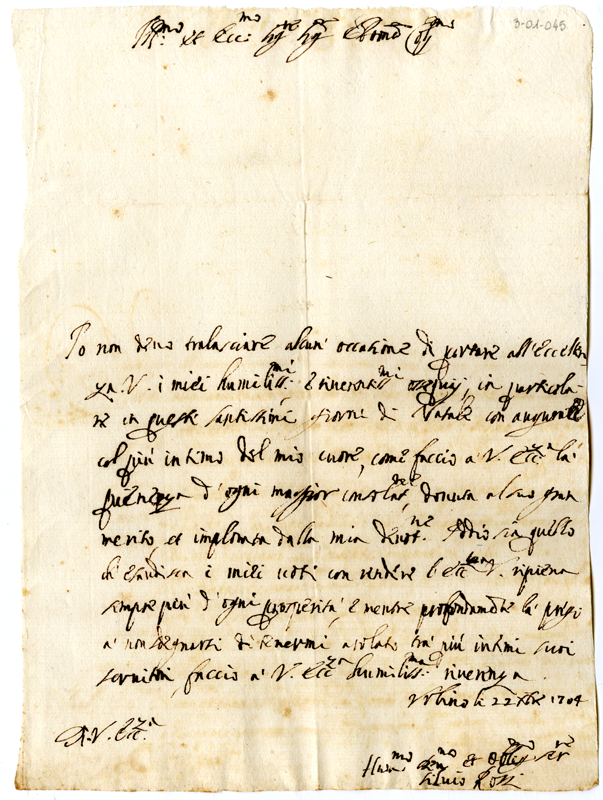 3-01-045
Ill.mo et Ecc.mo Sig.re Sig.re
Io non devo tralasciare alcun' occatione di portare all'Eccellen
za V. i miei humiliss.mi e riverentiss.mi ossequij, in particola
re in queste santissime giorni di Natale con augurarle
col più intimo del mio cuore, come faccio à V. Ecc.za la
pienezza d'ogni maggior consolat.ne, dovuta al suo gran
merito, et implorata dalla mia devot.ne. Iddio sia quello
ch'esaudisca i miei voti con rendere l'Ecc.za V. ripiena
sempre più d'ogni prosperità, e mentre profondamente la priego
à non sdegnarsi di tenermi a solato trà più intimi suoi
servitori, faccio à V. Ecc.za humiliss.ma riverenza.
Urbino li 22 Xbre 1704
D. V. Ecc.za
Hum.mo Dev.mo et Obblig.mo Ser.re
Silvio Rossi